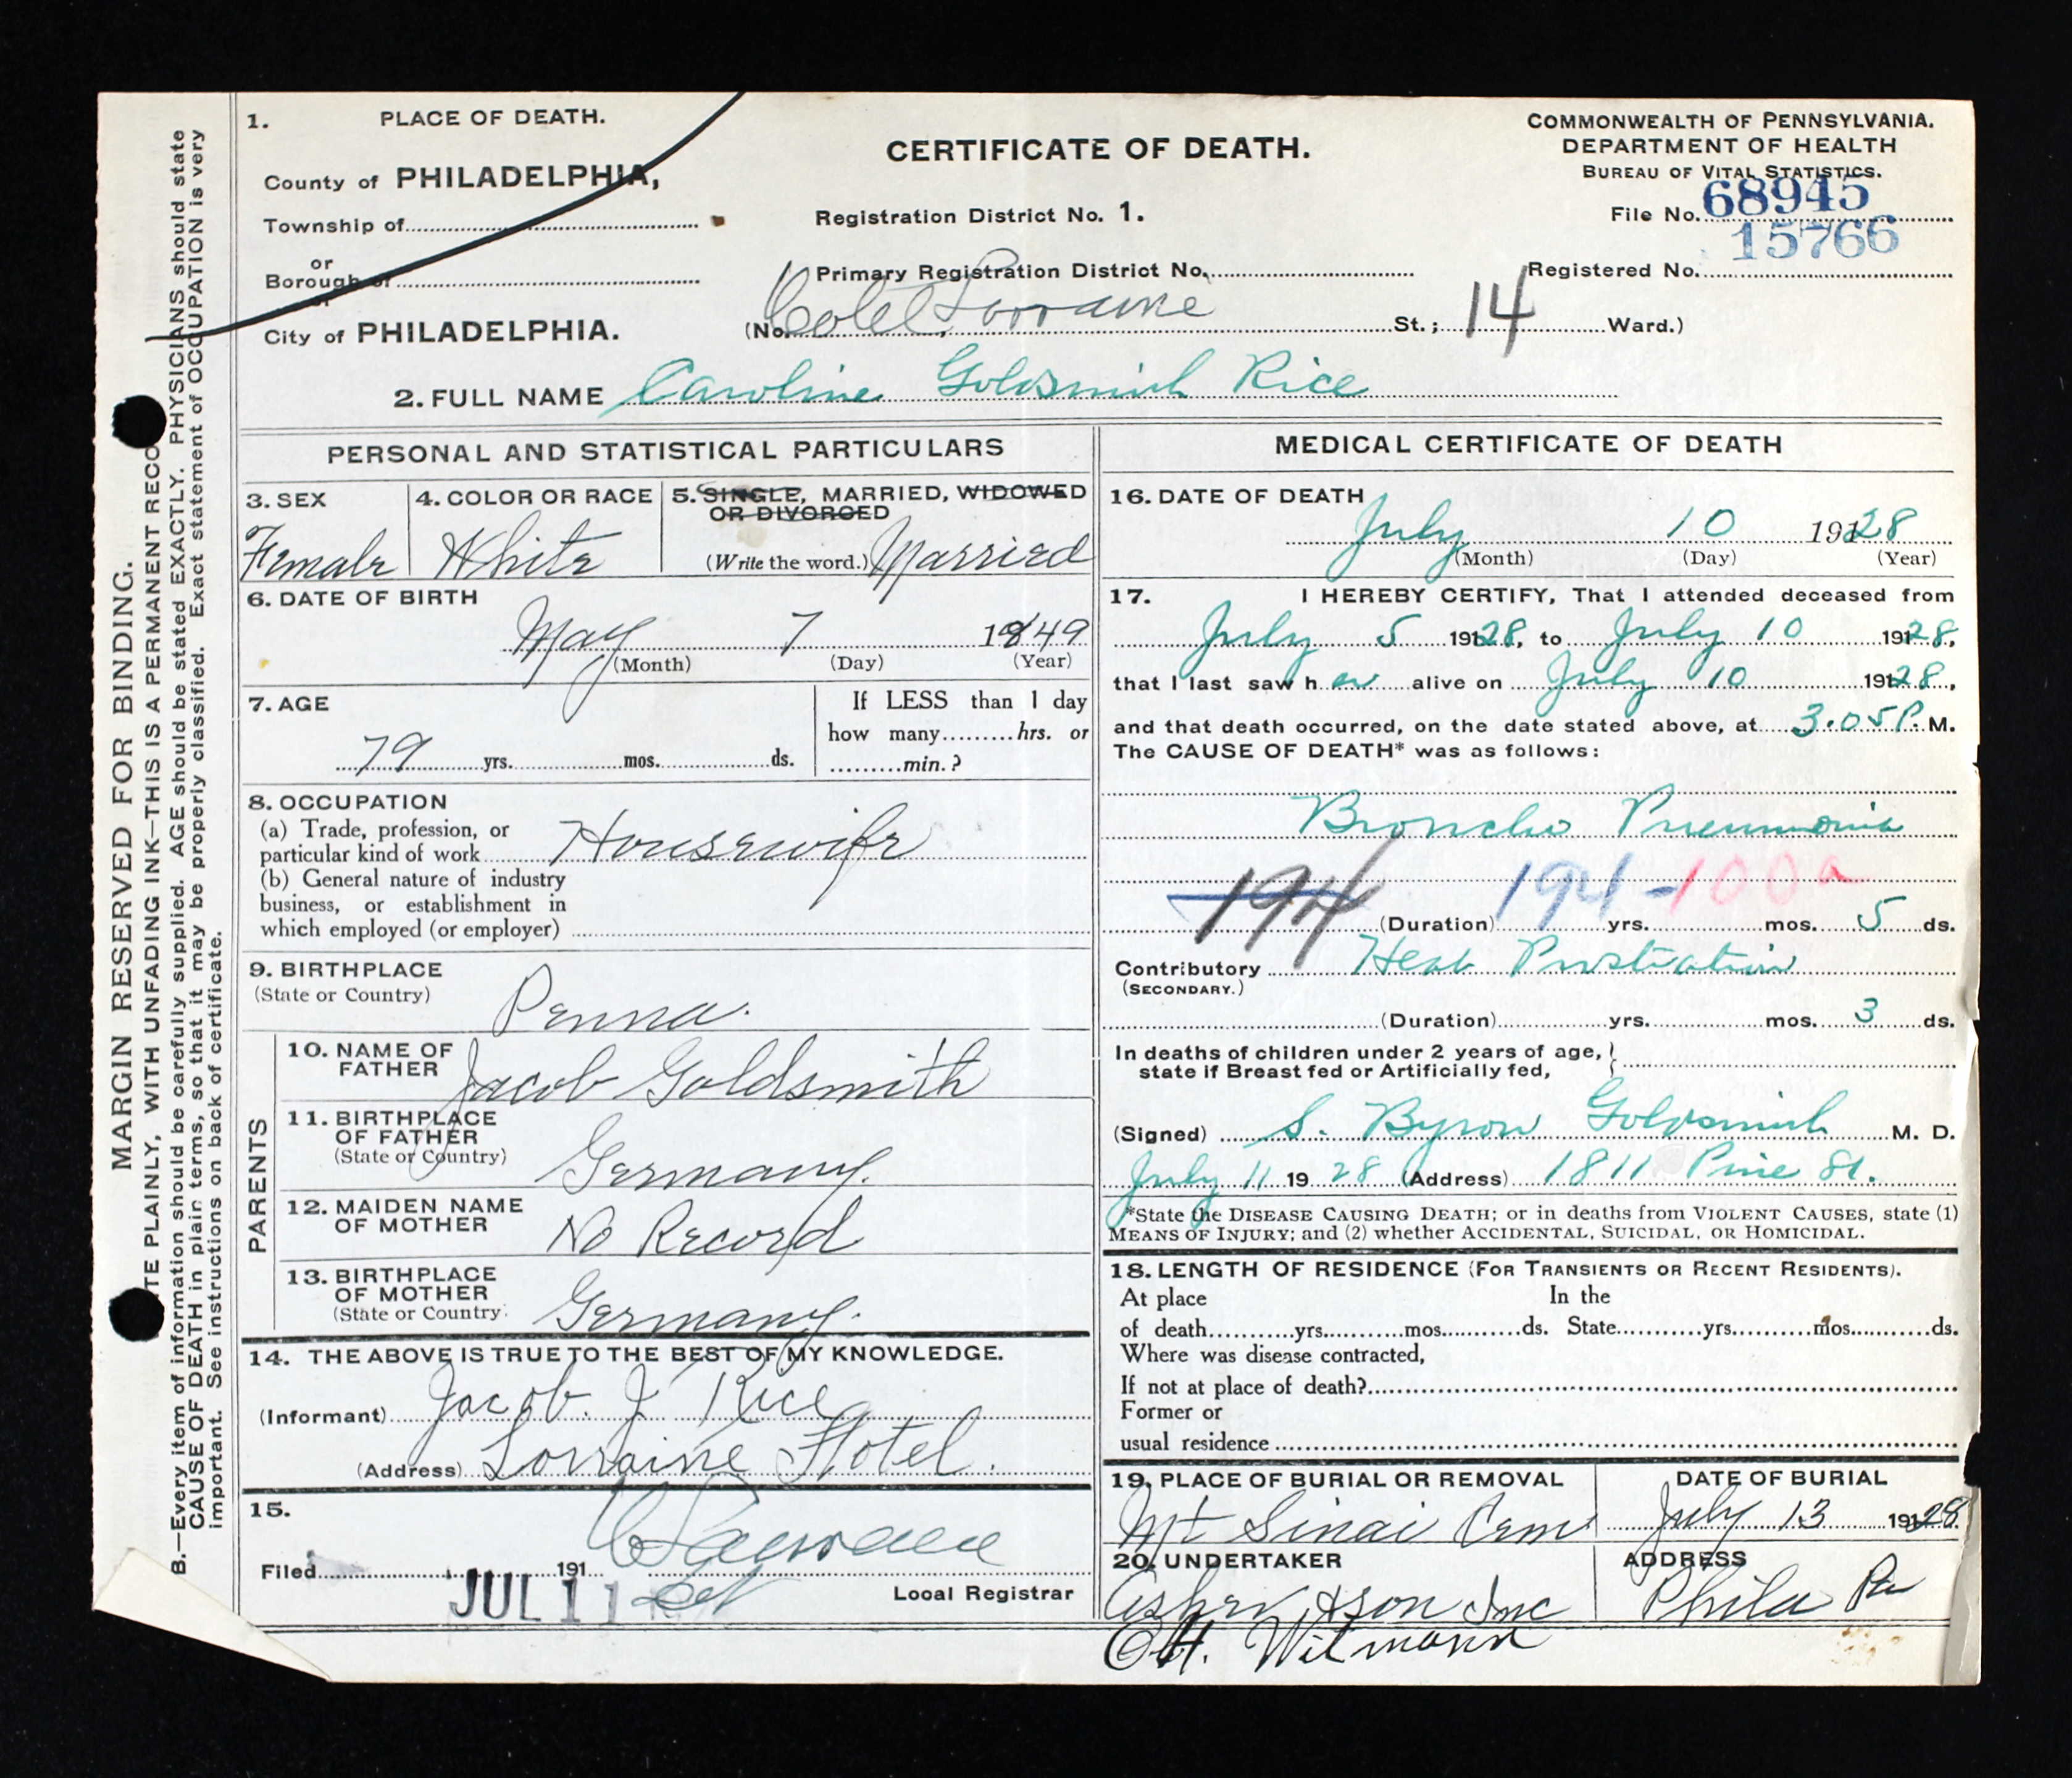 1. PLACE OF DEATH.
County of PHILADELPHIA,
Township of
or
Borough of
or
City of PHILADELPHIA.
CERTIFICATE OF DEATH.
Registration District No. 1.
Primary Registration District No.
(No. Hotel Lorraine St.; 14 Ward.)
COMMONWEALTH OF PENNSYLVANIA.
DEPARTMENT OF HEALTH
BUREAU OF VITAL STATISTICS.
File No. 68945
15766
Registered No.
2. FULL NAME Caroline Goldsmith Rice
PERSONAL AND STATISTICAL PARTICULARS
3. SEX
Female
4. COLOR OR RACE
White
5. SINGLE, MARRIED, WIDOWED
OR DIVORCED
(Write the word.) Married
6. DATE OF BIRTH
May 7 1849
(Month) (Day) (Year)
7. AGE
79 yrs. mos. ds.
If LESS than 1 day
how many hrs. or
min.?
8. OCCUPATION
(a) Trade, profession, or
particular kind of work Housewife
(b) General nature of industry
business, or establishment in
which employed (or employer)
9. BIRTHPLACE
(State or Country)
Penna.
PARENTS
10. NAME OF
FATHER
Jacob Goldsmith
11. BIRTHPLACE
OF FATHER
(State or Country)
Germany.
12. MAIDEN NAME
OF MOTHER
No Record
13. BIRTHPLACE
OF MOTHER
(State or Country)
Germany.
14. THE ABOVE IS TRUE TO THE BEST OF MY KNOWLEDGE.
(Informant) Jacob. J Rice
(Address) Lorraine Hotel.
15.
Filed 191
JUL 11
Local Registrar
MEDICAL CERTIFICATE OF DEATH
16. DATE OF DEATH
July 10 1928
(Month) (Day) (Year)
17. I HEREBY CERTIFY, That I attended deceased from
July 5 1928, to July 10 1928,
that I last saw her alive on July 10 1928,
and that death occurred, on the date stated above, at 3.05 P. M.
The CAUSE OF DEATH* was as follows:
Broncho Pneumonia
194 194-100a
(Duration) yrs. mos. 5 ds.
Contributory Heat Prostration
(SECONDARY.)
(Duration) yrs. mos. 3 ds.
In deaths of children under 2 years of age,
state if Breast fed or Artificially fed,
(Signed) S. Byron Goldsmith M. D.
July 11 1928 (Address) 1811 Pine St.
*State the DISEASE CAUSING DEATH; or in deaths from VIOLENT CAUSES, state (1)
MEANS OF INJURY; and (2) whether ACCIDENTAL, SUICIDAL, OR HOMICIDAL.
18. LENGTH OF RESIDENCE (FOR TRANSIENTS OR RECENT RESIDENTS).
At place In the
of death yrs. mos. ds. State yrs. mos. ds.
Where was disease contracted,
If not at place of death?
Former or
usual residence
19. PLACE OF BURIAL OR REMOVAL
Mt Sinai Cem
DATE OF BURIAL
July 13 1928
20. UNDERTAKER
Asher & Son Inc
ADDRESS
Phila Pa
MARGIN RESERVED FOR BINDING.
TE PLAINLY, WITH UNFADING INK—THIS IS A PERMANENT RECO
B.—Every item of information should be carefully supplied. AGE should be stated EXACTLY. PHYSICIANS should state
CAUSE OF DEATH in plain terms, so that it may be properly classified. Exact statement of OCCUPATION is very
important. See instructions on back of certificate.